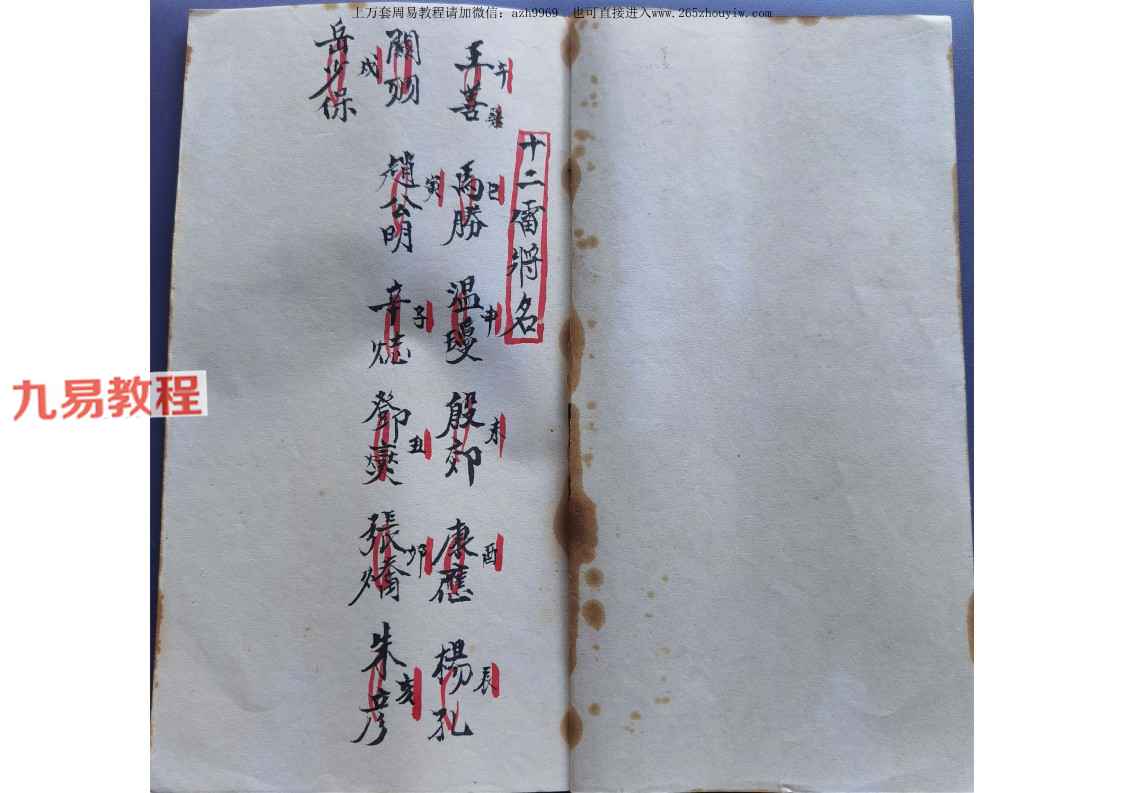 上万套周易教程请加微信：azh9969　也可直接进入www.265zhouyiw.com
十二雷将名
王善 午
馬勝 巳
温瓊 申
殷郊 未
康應 酉
楊孔 辰
關羽
趙公明 寅
辛
子
鄧燮 丑
張 卯
朱彦 亥
岳 保 戌
九易教程